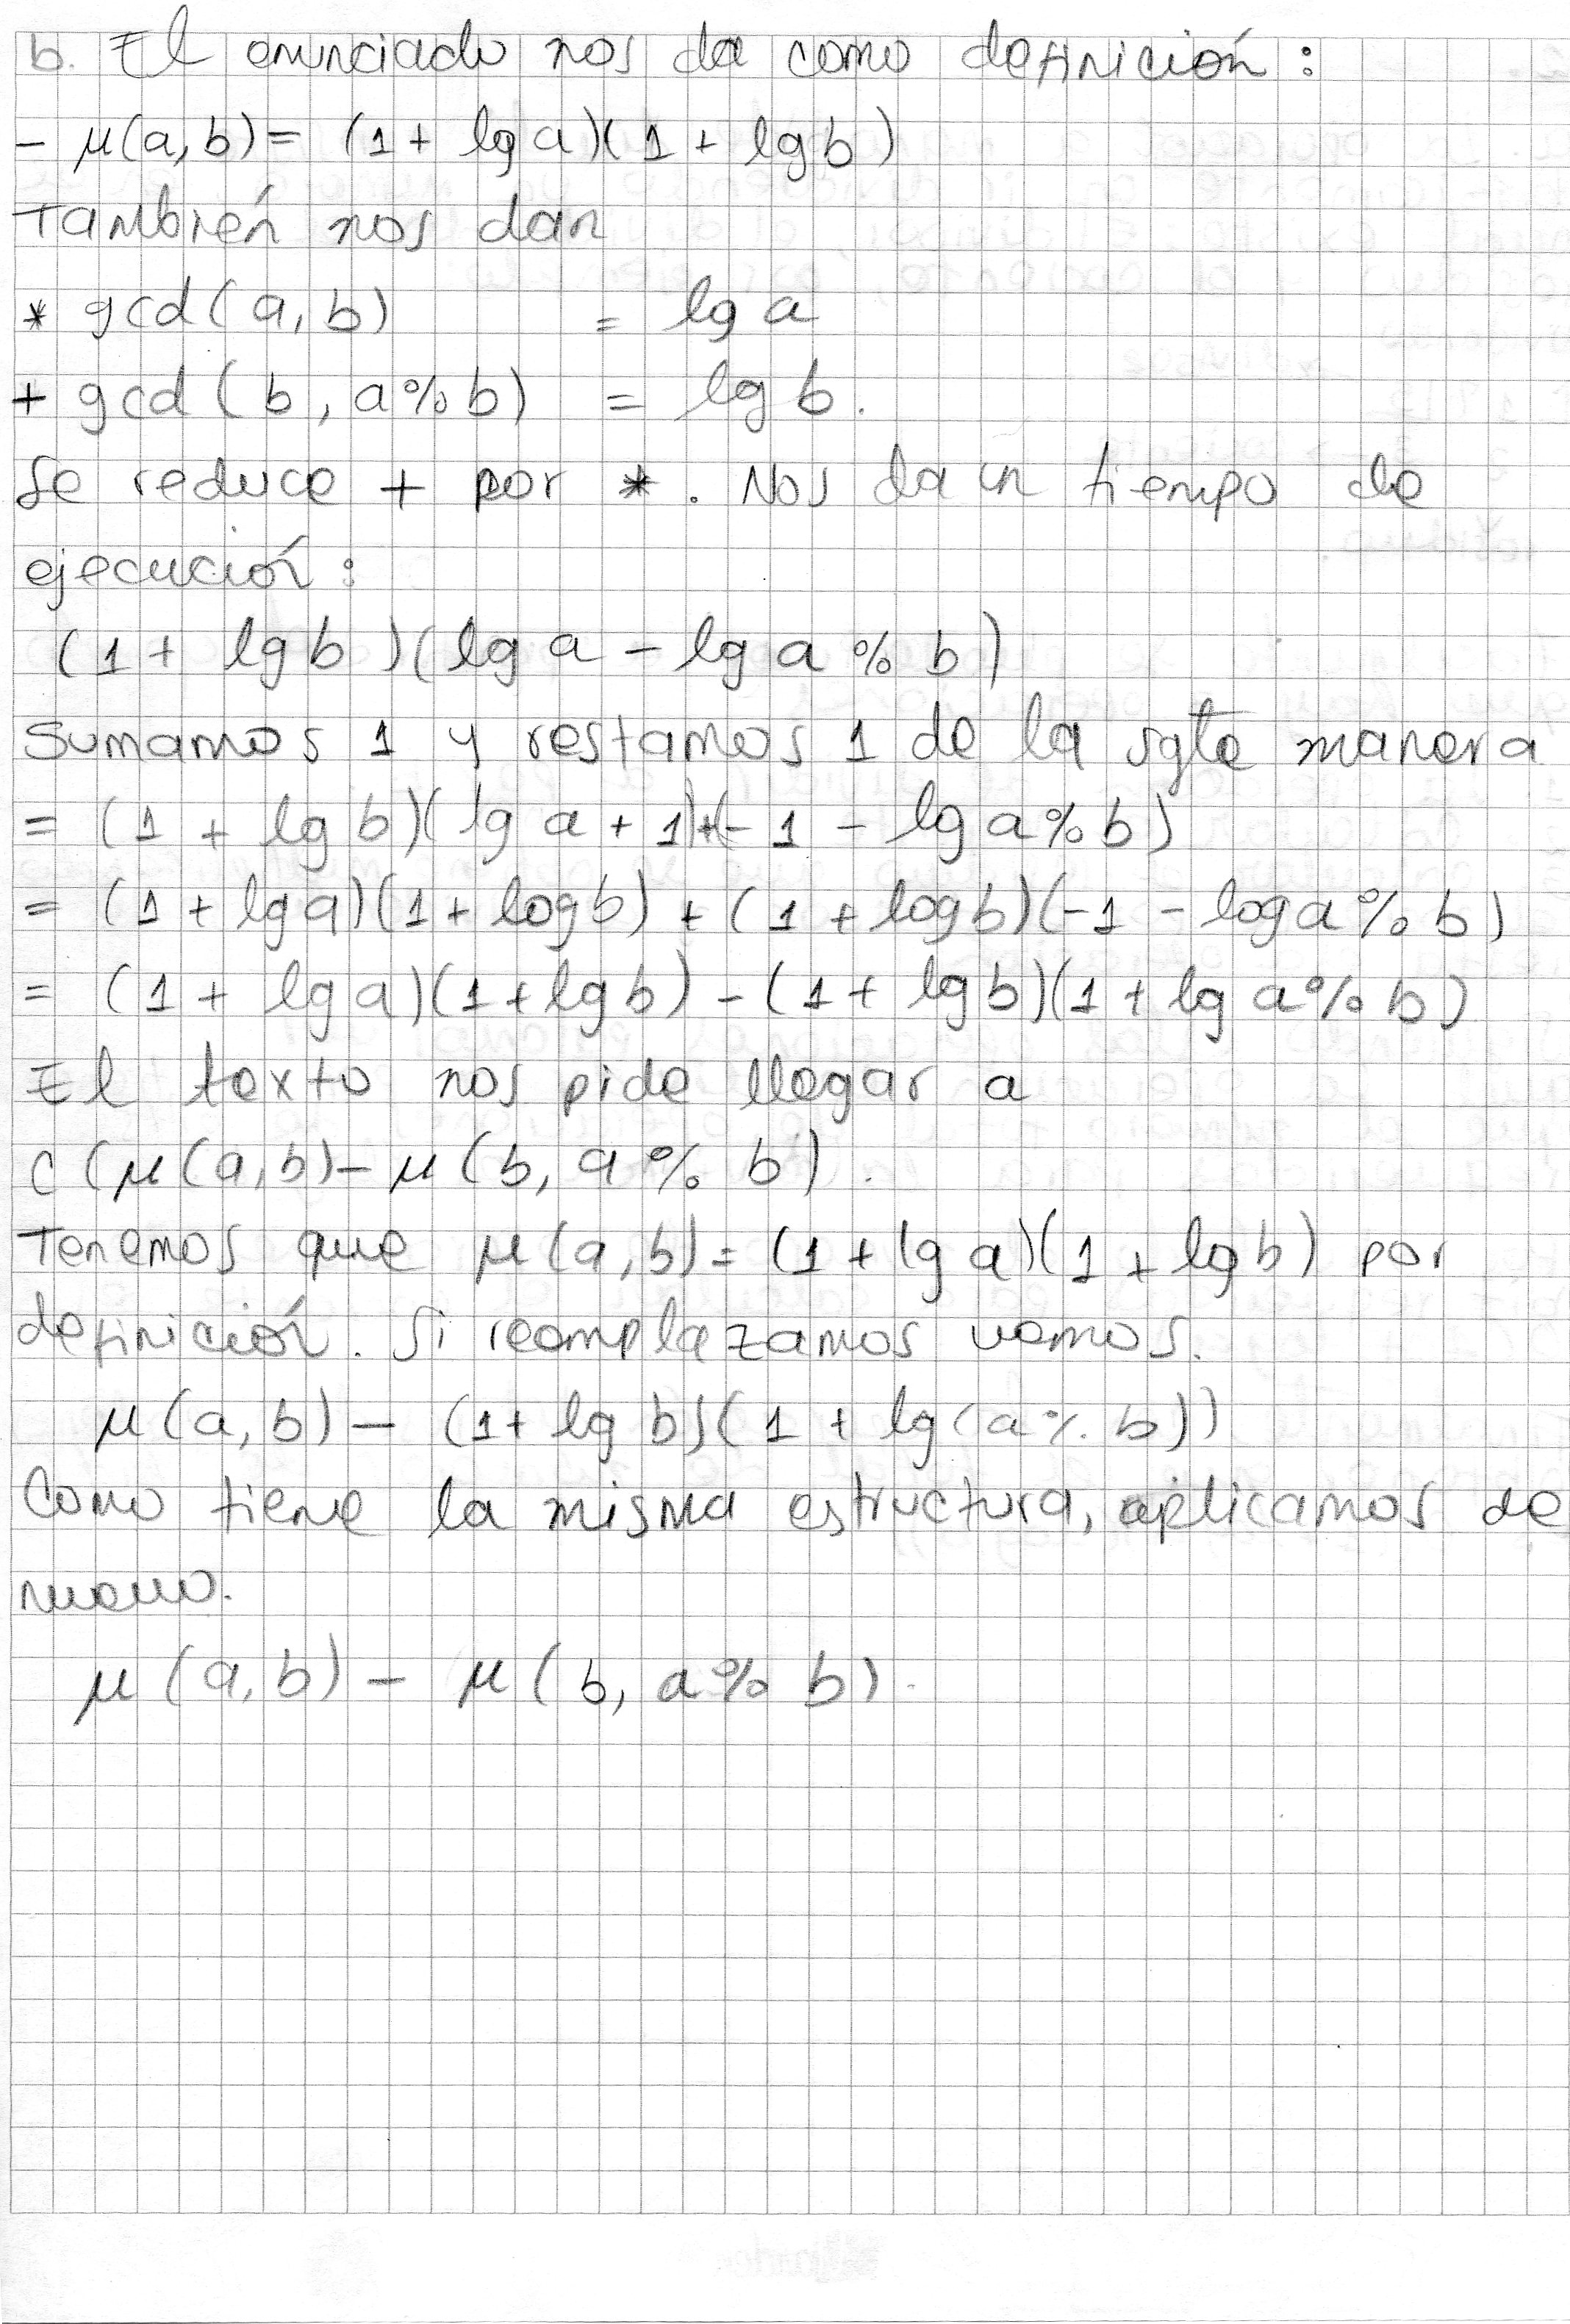 b. El enunciado nos da como definición:
- μ(a,b)= (1+ lg a)(1 + lg b)
También nos dan
* gcd(a,b) = lg a
+ gcd(b, a%b) = lg b.
Se reduce + por *. Nos da un tiempo de
ejecución:
(1+ lg b)(lg a - lg a % b)
Sumamos 1 y restamos 1 de la sgte manera
= (1 + lg b)(lg a + 1)+(-1 - lg a%b)
= (1 + lg a)(1 + log b) + (1 + log b)(-1 - log a % b)
= (1 + lg a)(1+lg b) - (1+ lg b)(1 + lg a%b)
El texto nos pide llegar a
C(μ(a,b)- μ(b, a% b).
Tenemos que μ(a,b)= (1 + lg a)(1 + lg b) por
definición. Si reemplazamos vemos.
μ(a,b) - (1+ lg b)(1 + lg(a% b))
Como tiene la misma estructura, aplicamos de
nuevo.
μ(a,b) - μ(b, a% b).